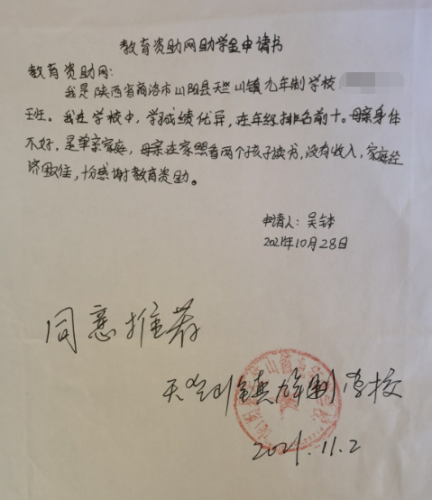 教育资助网助学金申请书
教育资助网：
我是陕西省商洛市山阳县天竺山镇九年制学校
班。我在学校中，学习成绩优异，在年级排名前十。母亲身体
不好，是单亲家庭，母亲在家照看两个孩子读书，没有收入，家庭经
济困难，十分感谢教育资助。
申请人：吴
2021年10月28日
同意推荐
天竺山镇九年制学校
2021.11.2